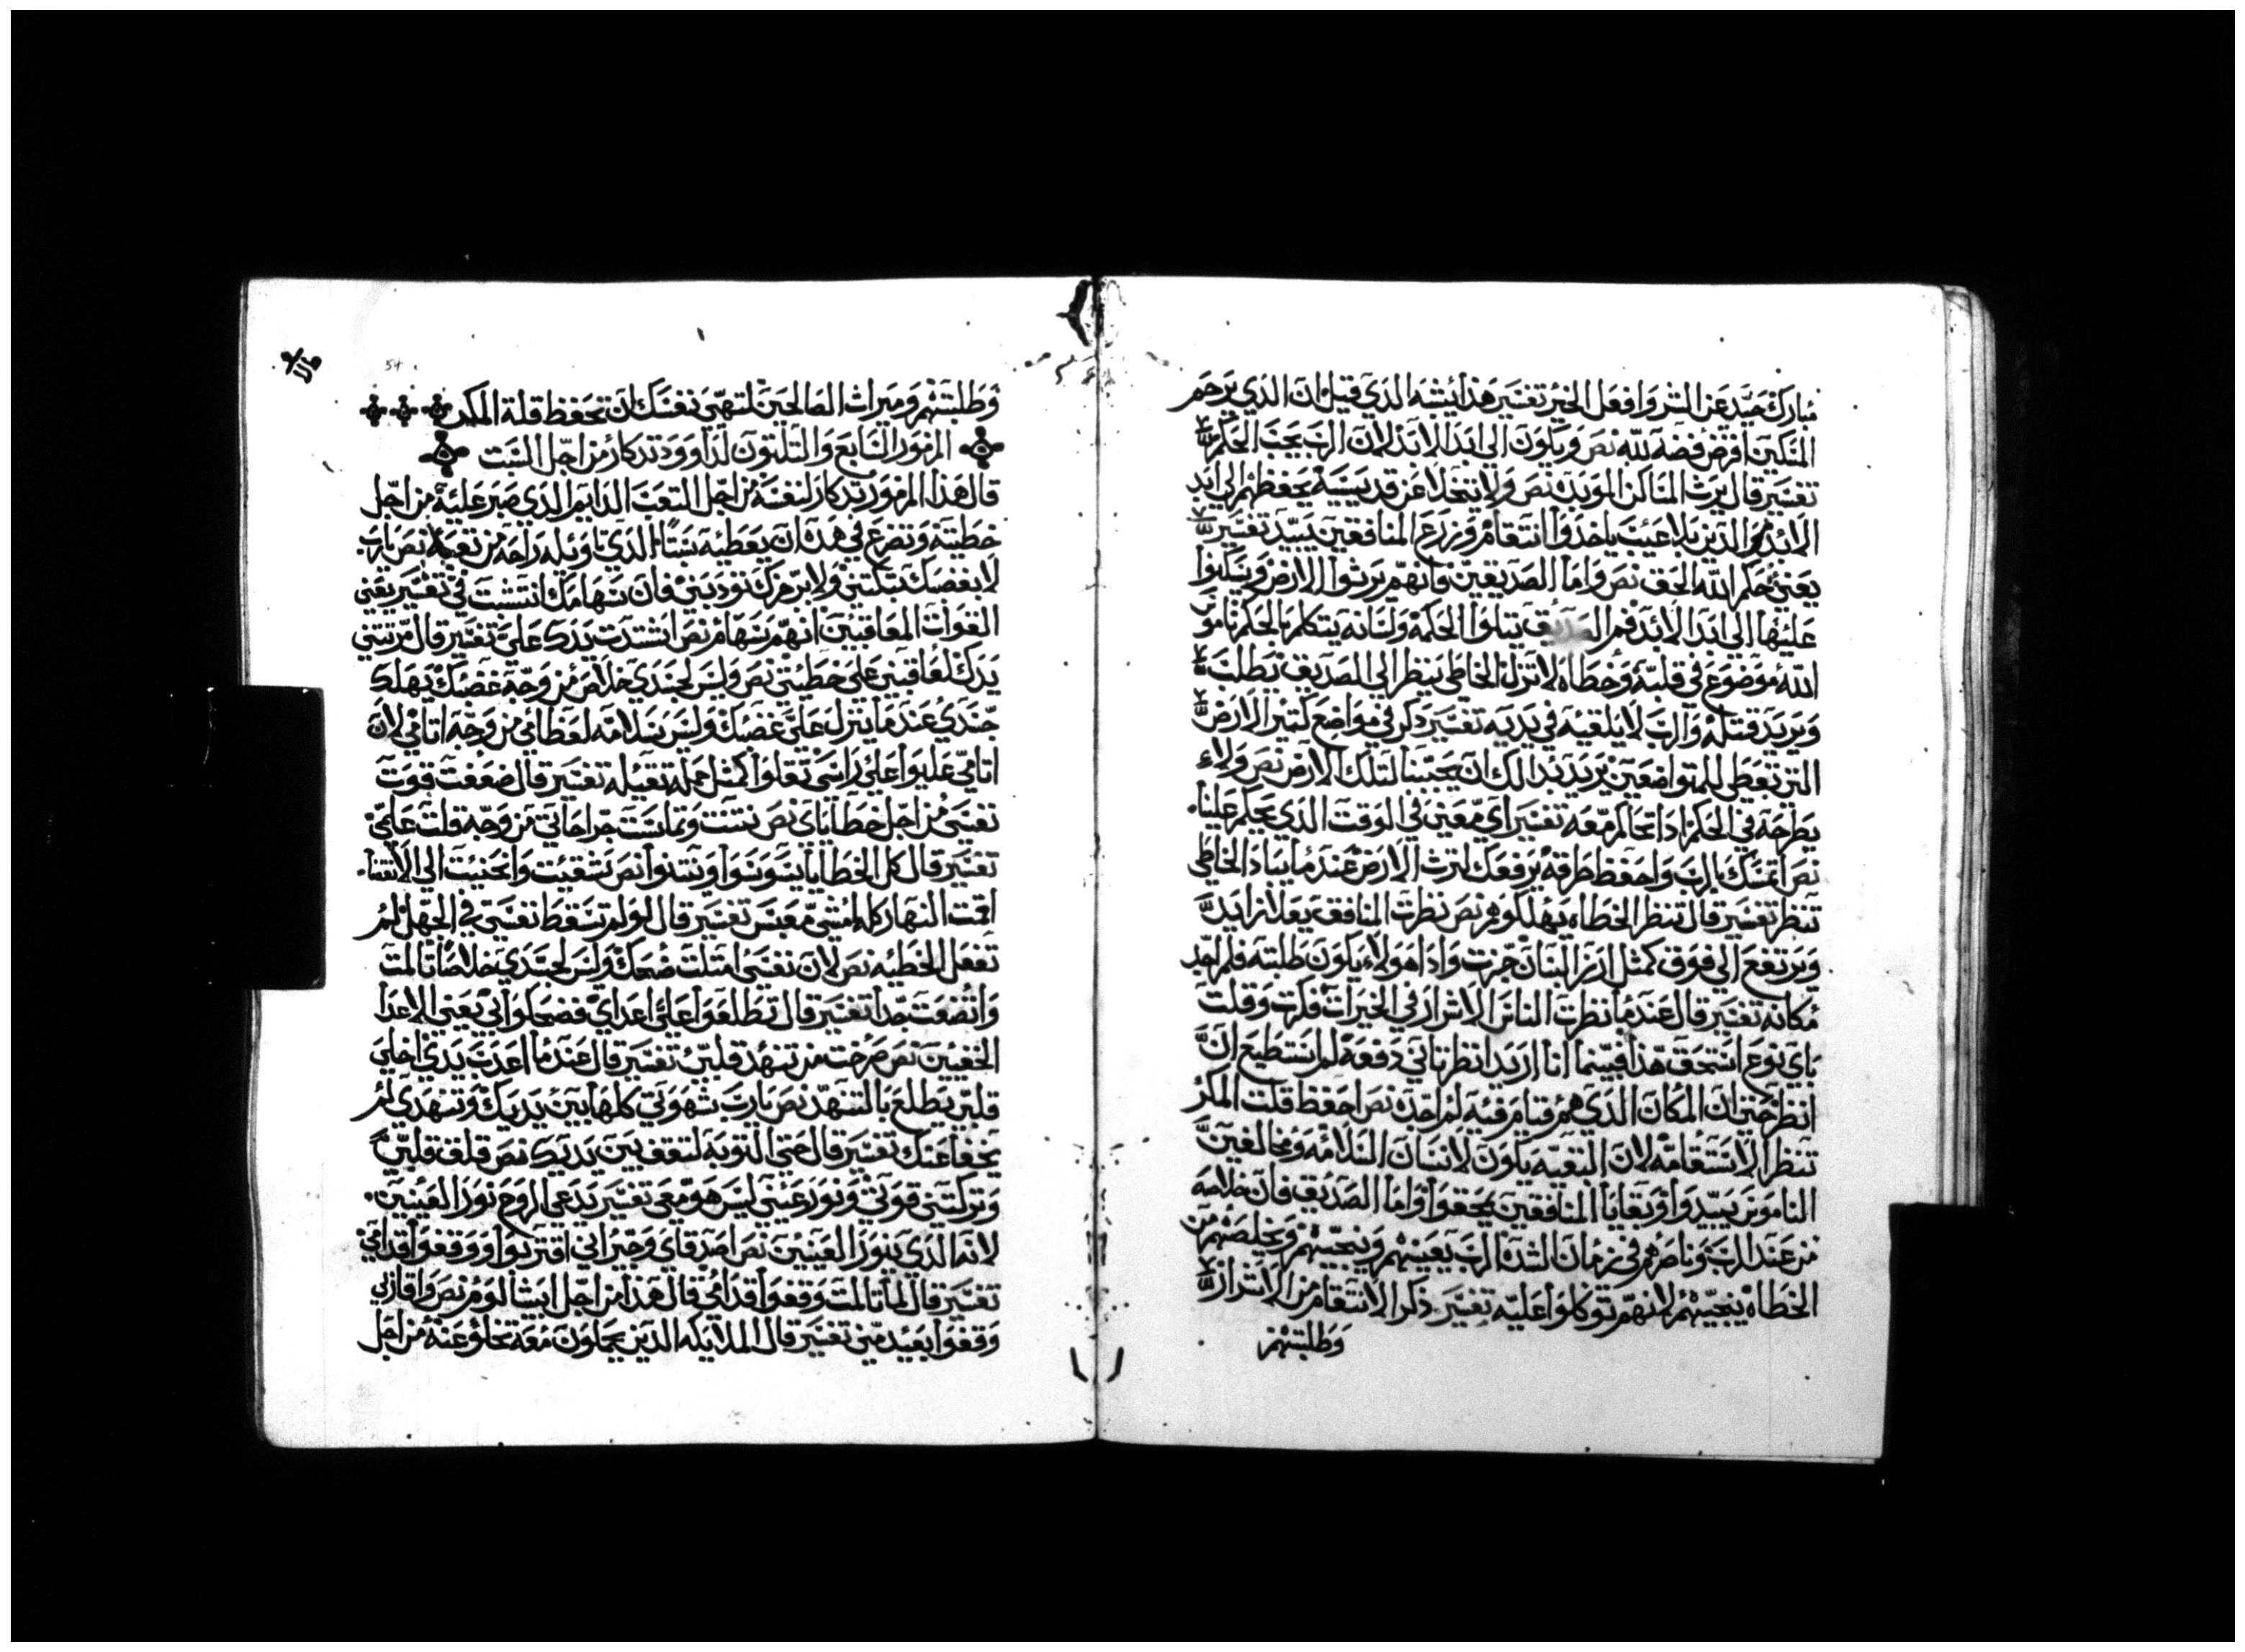 مبارك حيد عن الشر وافعل الخير تفسير هذا يشبه الذي قيل ان الذي يرحم
المسكين اقرض فضه لله نص ويكون الى ابد الابد لان الرب يحب الحكم
تفسير قال يرث المساكن الموبده نص ولا يتخلا عن قديسيه يحفظهم الى ابد
الابد هو الذين بلا عيب ياخدوا انتقام وزرع المنافقين يبيد تفسير
يعني حكم الله الحق نص واما الصديقين فانهم يرثوا الارض ويسكنوا
عليها الى ابد الابد فم الصديق يتلوا الحكمه ولسانه يتكلم بالحكم ناموس
الله موضوع في قلبه وخطاه لا تزل الخاطى ينظر الى الصديق يطلب
ويريد قتله والرب لا يلقيه في يديه تفسير ذكر في مواضع كتير الارض
التى تعطى للمتواضعين يريد بدالك ان يحببنا لتلك الارض نص ولاء
يطرحه في الحكم اذا تحاكم معه تفسير اي معين في الوقت الذي يحكم علينا
نص اتمسك بالرب واحفظ طرقه يرفعك لترث الارض عندما يباد الخاطى
تنظر تفسير قال تنظر الخطاه يهلكو هم نص نظرت المنافق يعلا تزايد
ويرتفع الى فوق كمثل ارز لبنان جزت واذا هو لاء يكون طلبته فلم اجد
مكانه تفسير قال عندما نظرت الناس الاشرار في الخيرات فكرت وقلت
باي نوع استحق هذا فبينما انا اريد انظر تاني دفعه لم استطيع ان
انظر حتى ان المكان الذي هم قيام فيه لم اجدن نص احفظ قلت المكر
تنظر الاستقامه لان البقيه يكون لانسان السلامه ومخالفين
الناموس يبيدوا وبقايا المنافقين يمحقوا واما الصديق فان خلاصه
من عند الرب وناصرهم في زمان الشده الرب يعينهم وينجيهم ويخلصهم من
الخطاه ينجيهم لانهم توكلوا عليه تفسير ذكر الانتقام من الاشرار
وطلبتهم
54
وطلبتهم وميراث الصالحين لتهي نفسك ان تحفظ قلة المكر
المزمور السابع والتلتون لداوود تدكار من اجل السبت
قال هذا المزمور تدكار لنفسه من اجل التعب الدايم الذي صبر عليه من اجل
خطيته وتضرع في هده ان يعطيه سبتا الذي تاويله راحه من تعبه نص يارب
لا بغضبك تبكتني ولا برجزك تودبني فان سهامك انتشبت في تفسير يعني
القوات المعاقبين انهم سهام نص اشتدت يدك علي تفسير قال مرتبتي
يدك لعاقبني على خطيتي نص وليس لجسدي خلاص من وجه غضبك يهلك
جسدي عندما ينزل علي غضبك وليس سلامه لعظامي من وجه اتامي لان
اتامي عليوا على راسى تقلوا كمثل حمله تقيله تفسير قال ضعفت قوت
نفسى من اجل خطاياي نص نتنت وتماست جراحاتي من وجه قلت علمي
تفسير قال كل الخطايا يسوسوا وينتنوا نص شقيت وانحنيت الى الانقضا
اقمت النهار كله امشي معبس تفسير قال لو لم تسقط نفسى في الجهل لم
تفعل الخطيه نص لان نفسى امتلت ضحك وليس لجسدي خلاصا تالمت
واتضعت جدا تفسير قال تطلعوا على اعداي فضحكوا بي يعني الاعدا
الخفيين نص صرخت من تنهد قلبي تفسير قال عندما اعدت يدي اخلي
قلبي يطلع بالتنهد نص يارب شهوتي كلها بين يديك وتنهدي لم
يخفا عنك تفسير قال حتى التوبه لتقف بين يديك نص قلق قلبي
وتركتني قوتي ونور عيني ليس هو معي تفسير يدعي الروح نور العينين
لانه الذي ينور العينين نص اصدقاي وجيراني اقتربوا ووقفوا قدامي
تفسير قال لما تالمت وقفوا قدامي قال هذا من اجل ابيشالوم نص واقاربي
وقفوا بعيد مني تفسير قال الملايكه الدين يحملون معه تخلو عنه من اجل